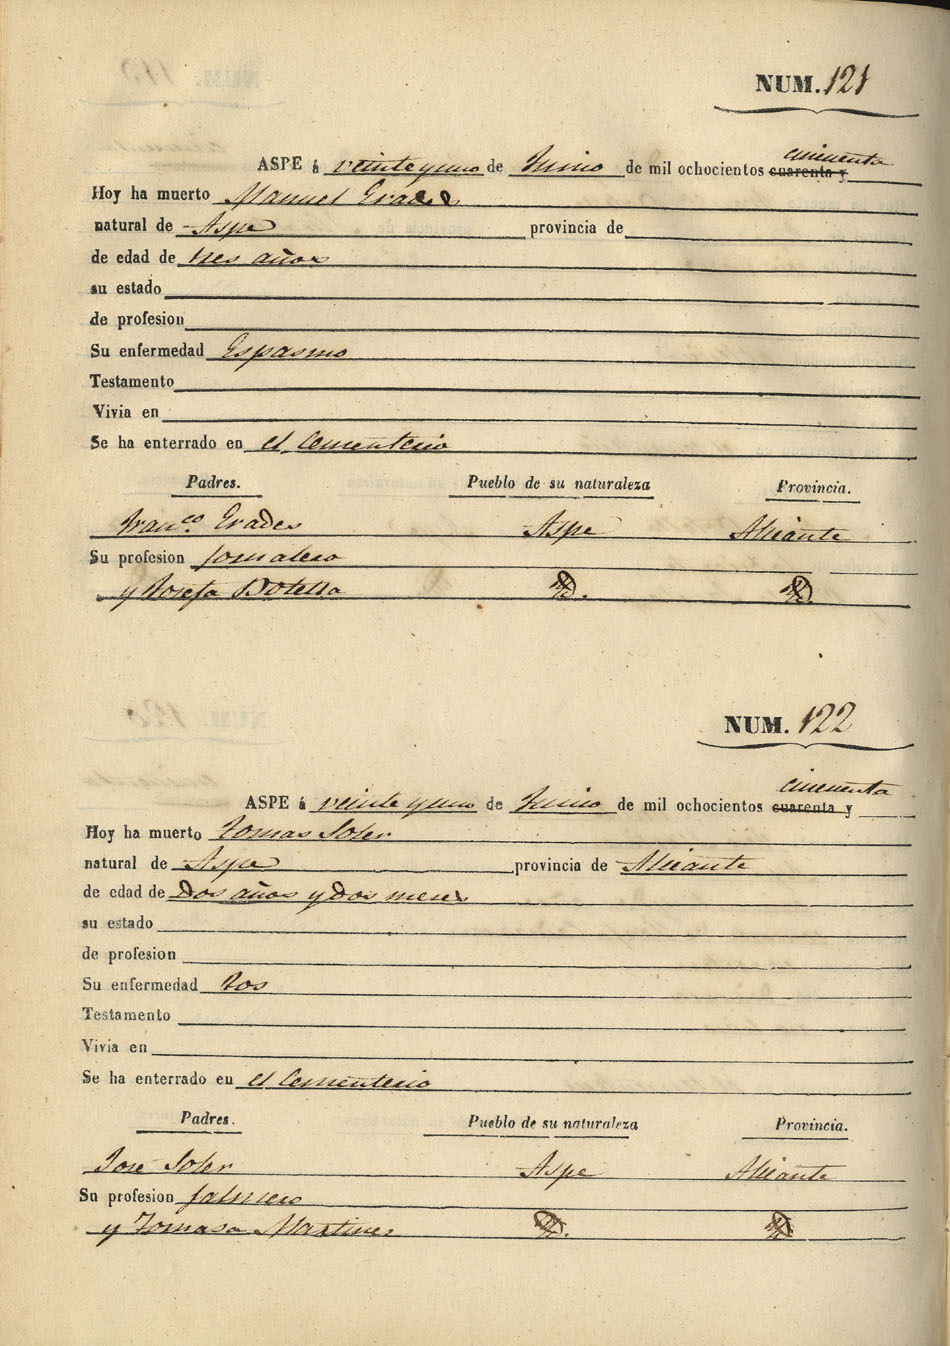 NUM. 121
cincuenta
ASPE á veinte y uno de Junio de mil ochocientos cuarenta y
Hoy ha muerto Manuel Erades
natural de Aspe provincia de
de edad de tres años
su estado
de profesion
Su enfermedad Espasmo
Testamento
Vivia en
Se ha enterrado en el Cementerio
Padres. Pueblo de su naturaleza Provincia.
Franco. Erades Aspe Alicante
Su profesion Jornalero
y Josefa Botella Yd. Yd.
NUM. 122
cincuenta
ASPE á veinte y uno de Junio de mil ochocientos cuarenta y
Hoy ha muerto Tomas Soler
natural de Aspe provincia de Alicante
de edad de Dos años y Dos meses
su estado
de profesion
Su enfermedad tos
Testamento
Vivia en
Se ha enterrado en el Cementerio
Padres. Pueblo de su naturaleza Provincia.
José Soler Aspe Alicante
Su profesion
y Tomasa Martinez Yd. Yd.